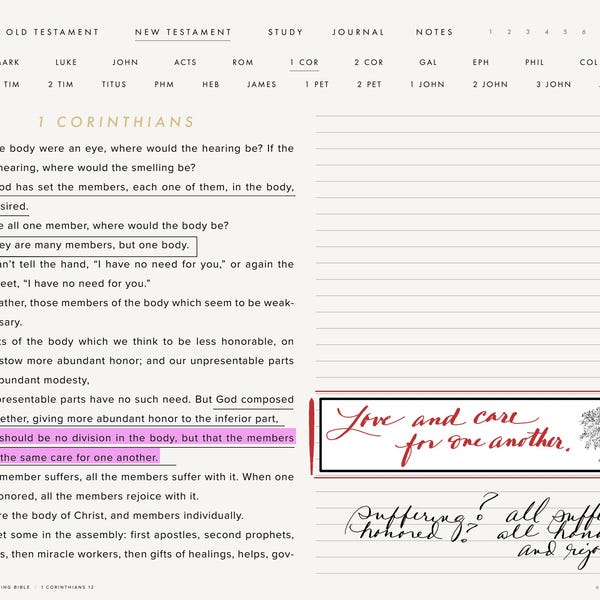 OLD TESTAMENT NEW TESTAMENT STUDY JOURNAL NOTES 1 2 3 4 5 6
MARK LUKE JOHN ACTS ROM 1 COR 2 COR GAL EPH PHIL COL
TIM 2 TIM TITUS PHM HEB JAMES 1 PET 2 PET 1 JOHN 2 JOHN 3 JOHN
1 CORINTHIANS
e body were an eye, where would the hearing be? If the
hearing, where would the smelling be?
od has set the members, each one of them, in the body,
sired.
e all one member, where would the body be?
ey are many members, but one body.
an't tell the hand, “I have no need for you,” or again the
eet, “I have no need for you.”
ather, those members of the body which seem to be weak-
sary.
ts of the body which we think to be less honorable, on
stow more abundant honor; and our unpresentable parts
bundant modesty,
presentable parts have no such need. But God composed
ether, giving more abundant honor to the inferior part,
should be no division in the body, but that the members
the same care for one another.
member suffers, all the members suffer with it. When one
onored, all the members rejoice with it.
re the body of Christ, and members individually.
et some in the assembly: first apostles, second prophets,
s, then miracle workers, then gifts of healings, helps, gov-
ING BIBLE | 1 CORINTHIANS 12
Love and care
for one another.
suffering? all suff
honored? all hono
and rejo